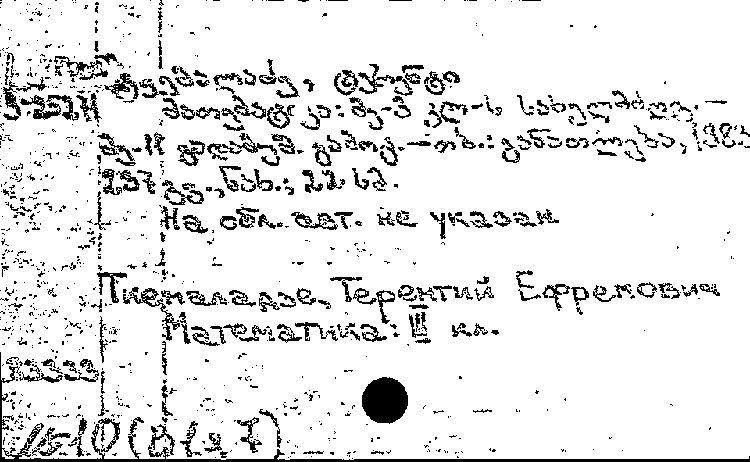 ტყემალაძე, ტერენტი
მათემატიკა: მე-3 კლ-ს სახელმძღვ. –
მე-11 გადამუშ. გამოც. – თბ.: განათლება, 1983
237 გვ., ნახ.; 22 სმ.
На обл. авт. не указан
Ткемаладзе, Терентий Ефремович
Математика: III кл.
23333